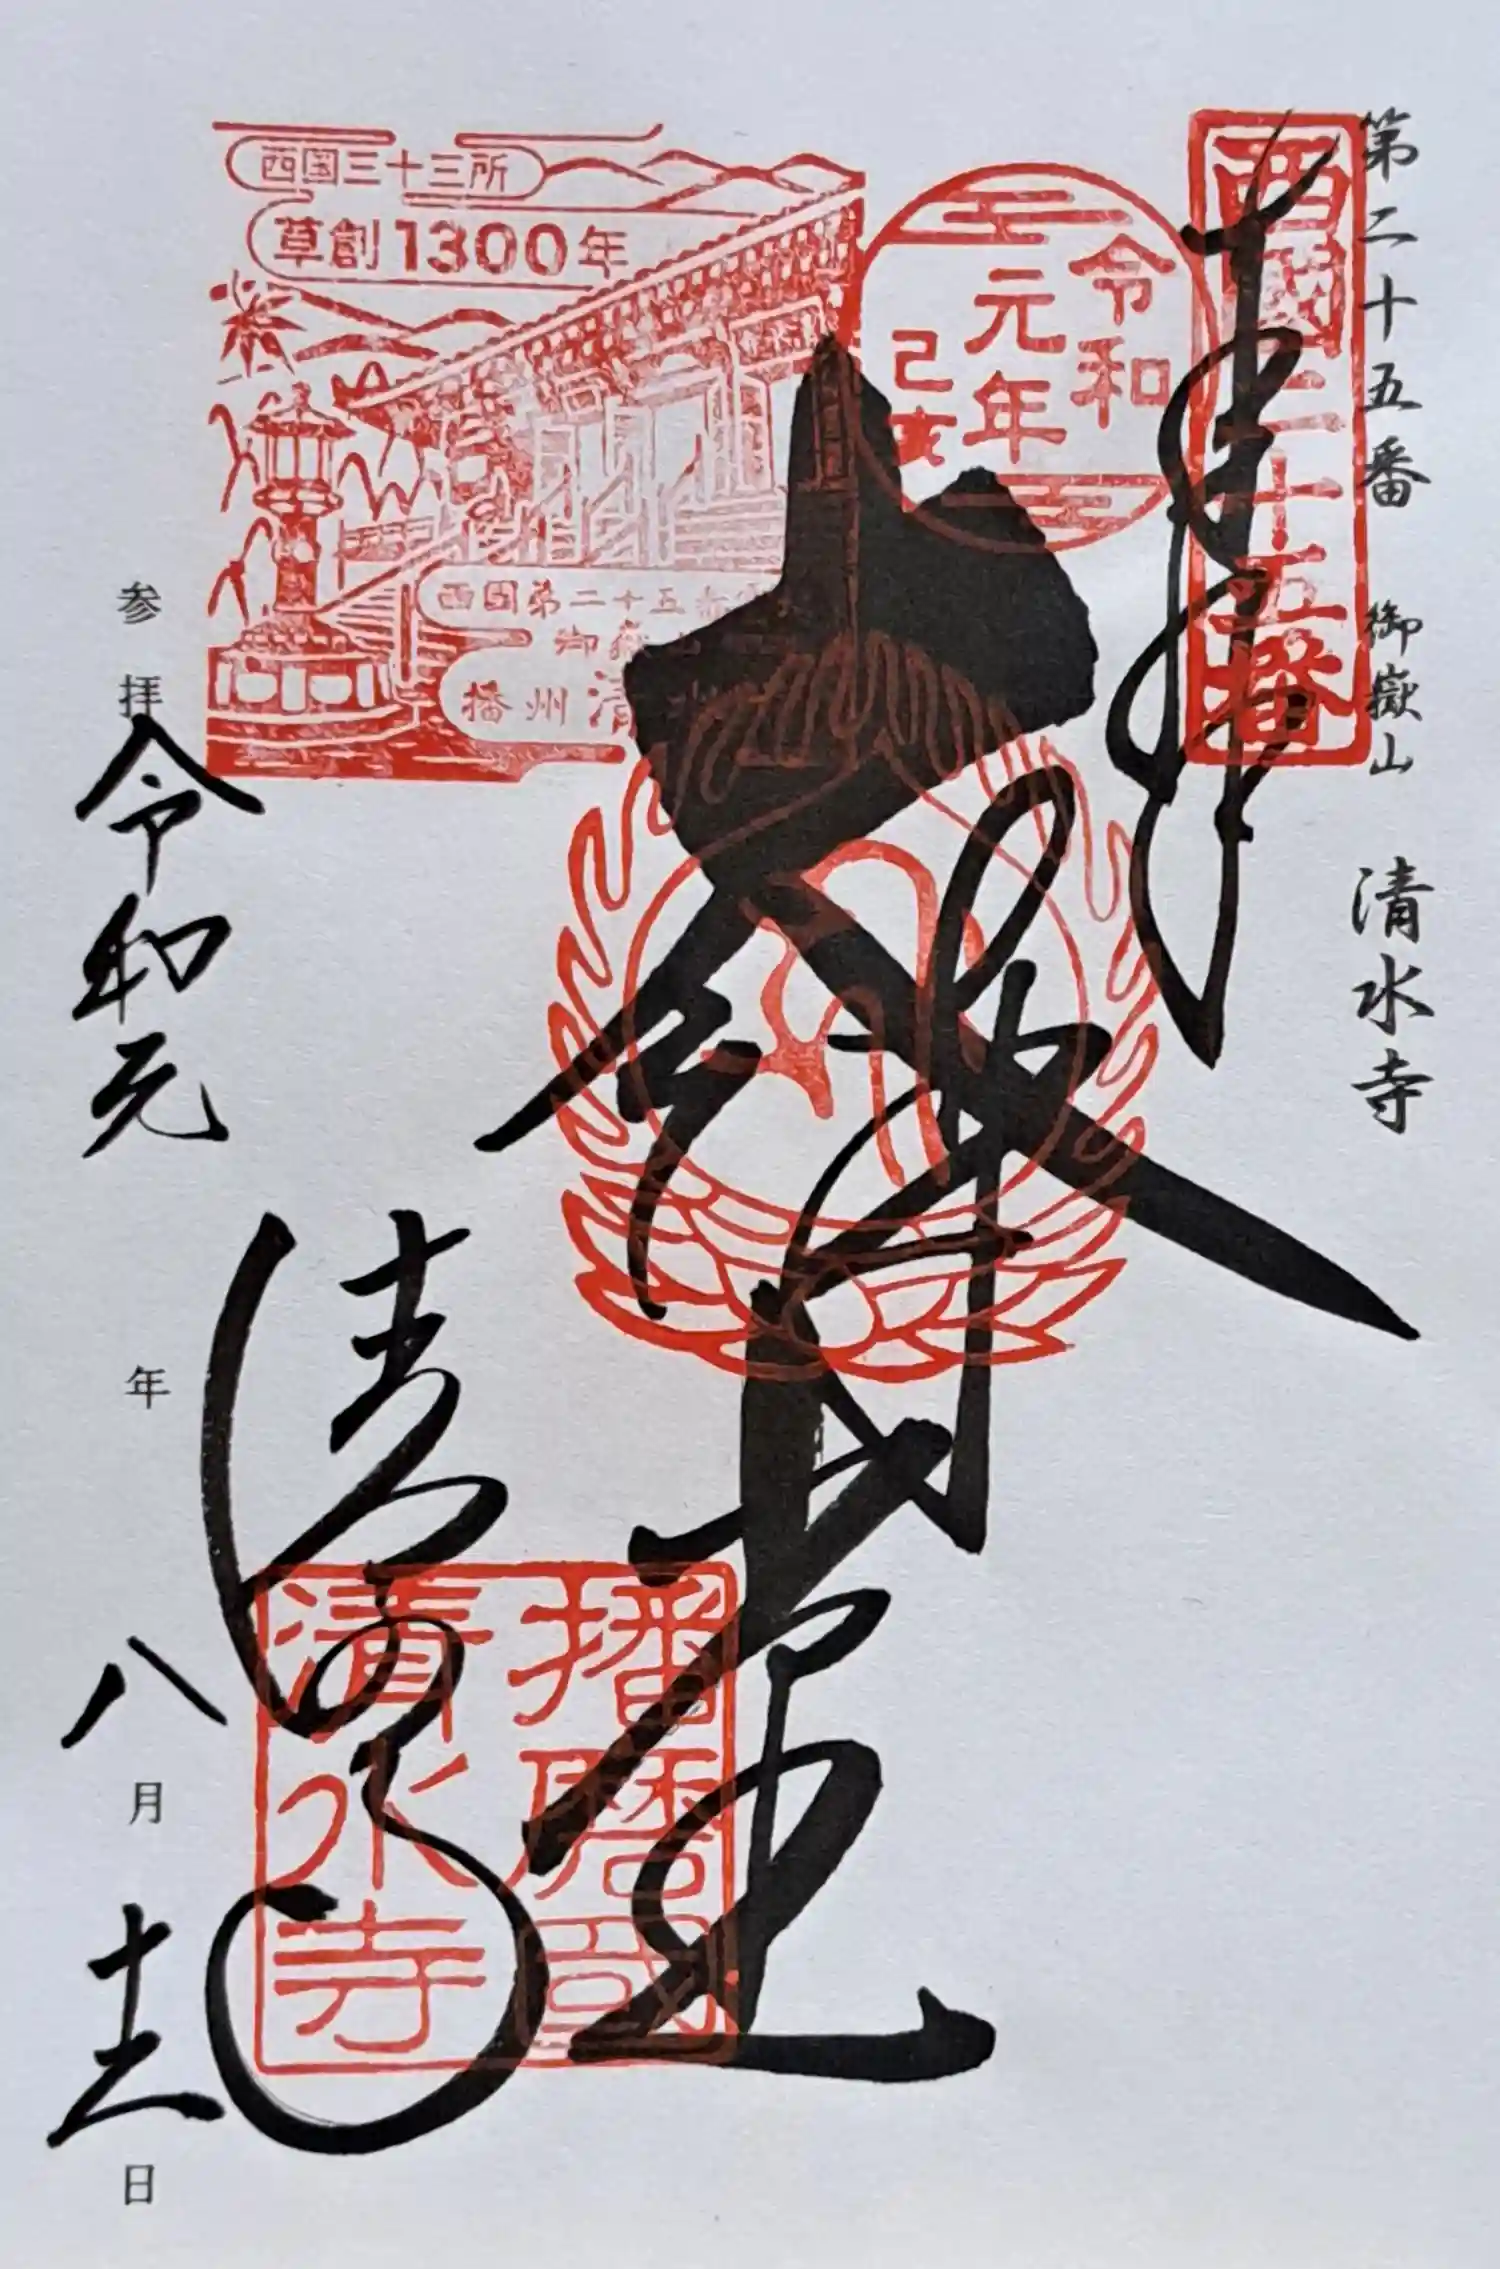 第二十五番 御嶽山 清水寺
西國二十五番
奉拝
令和
元年
己亥
西国三十三所
草創1300年
西国第二十五番
御嶽山
播州清水
大悲殿
播磨國
清水寺
清水寺
参拝令和元年八月十二日